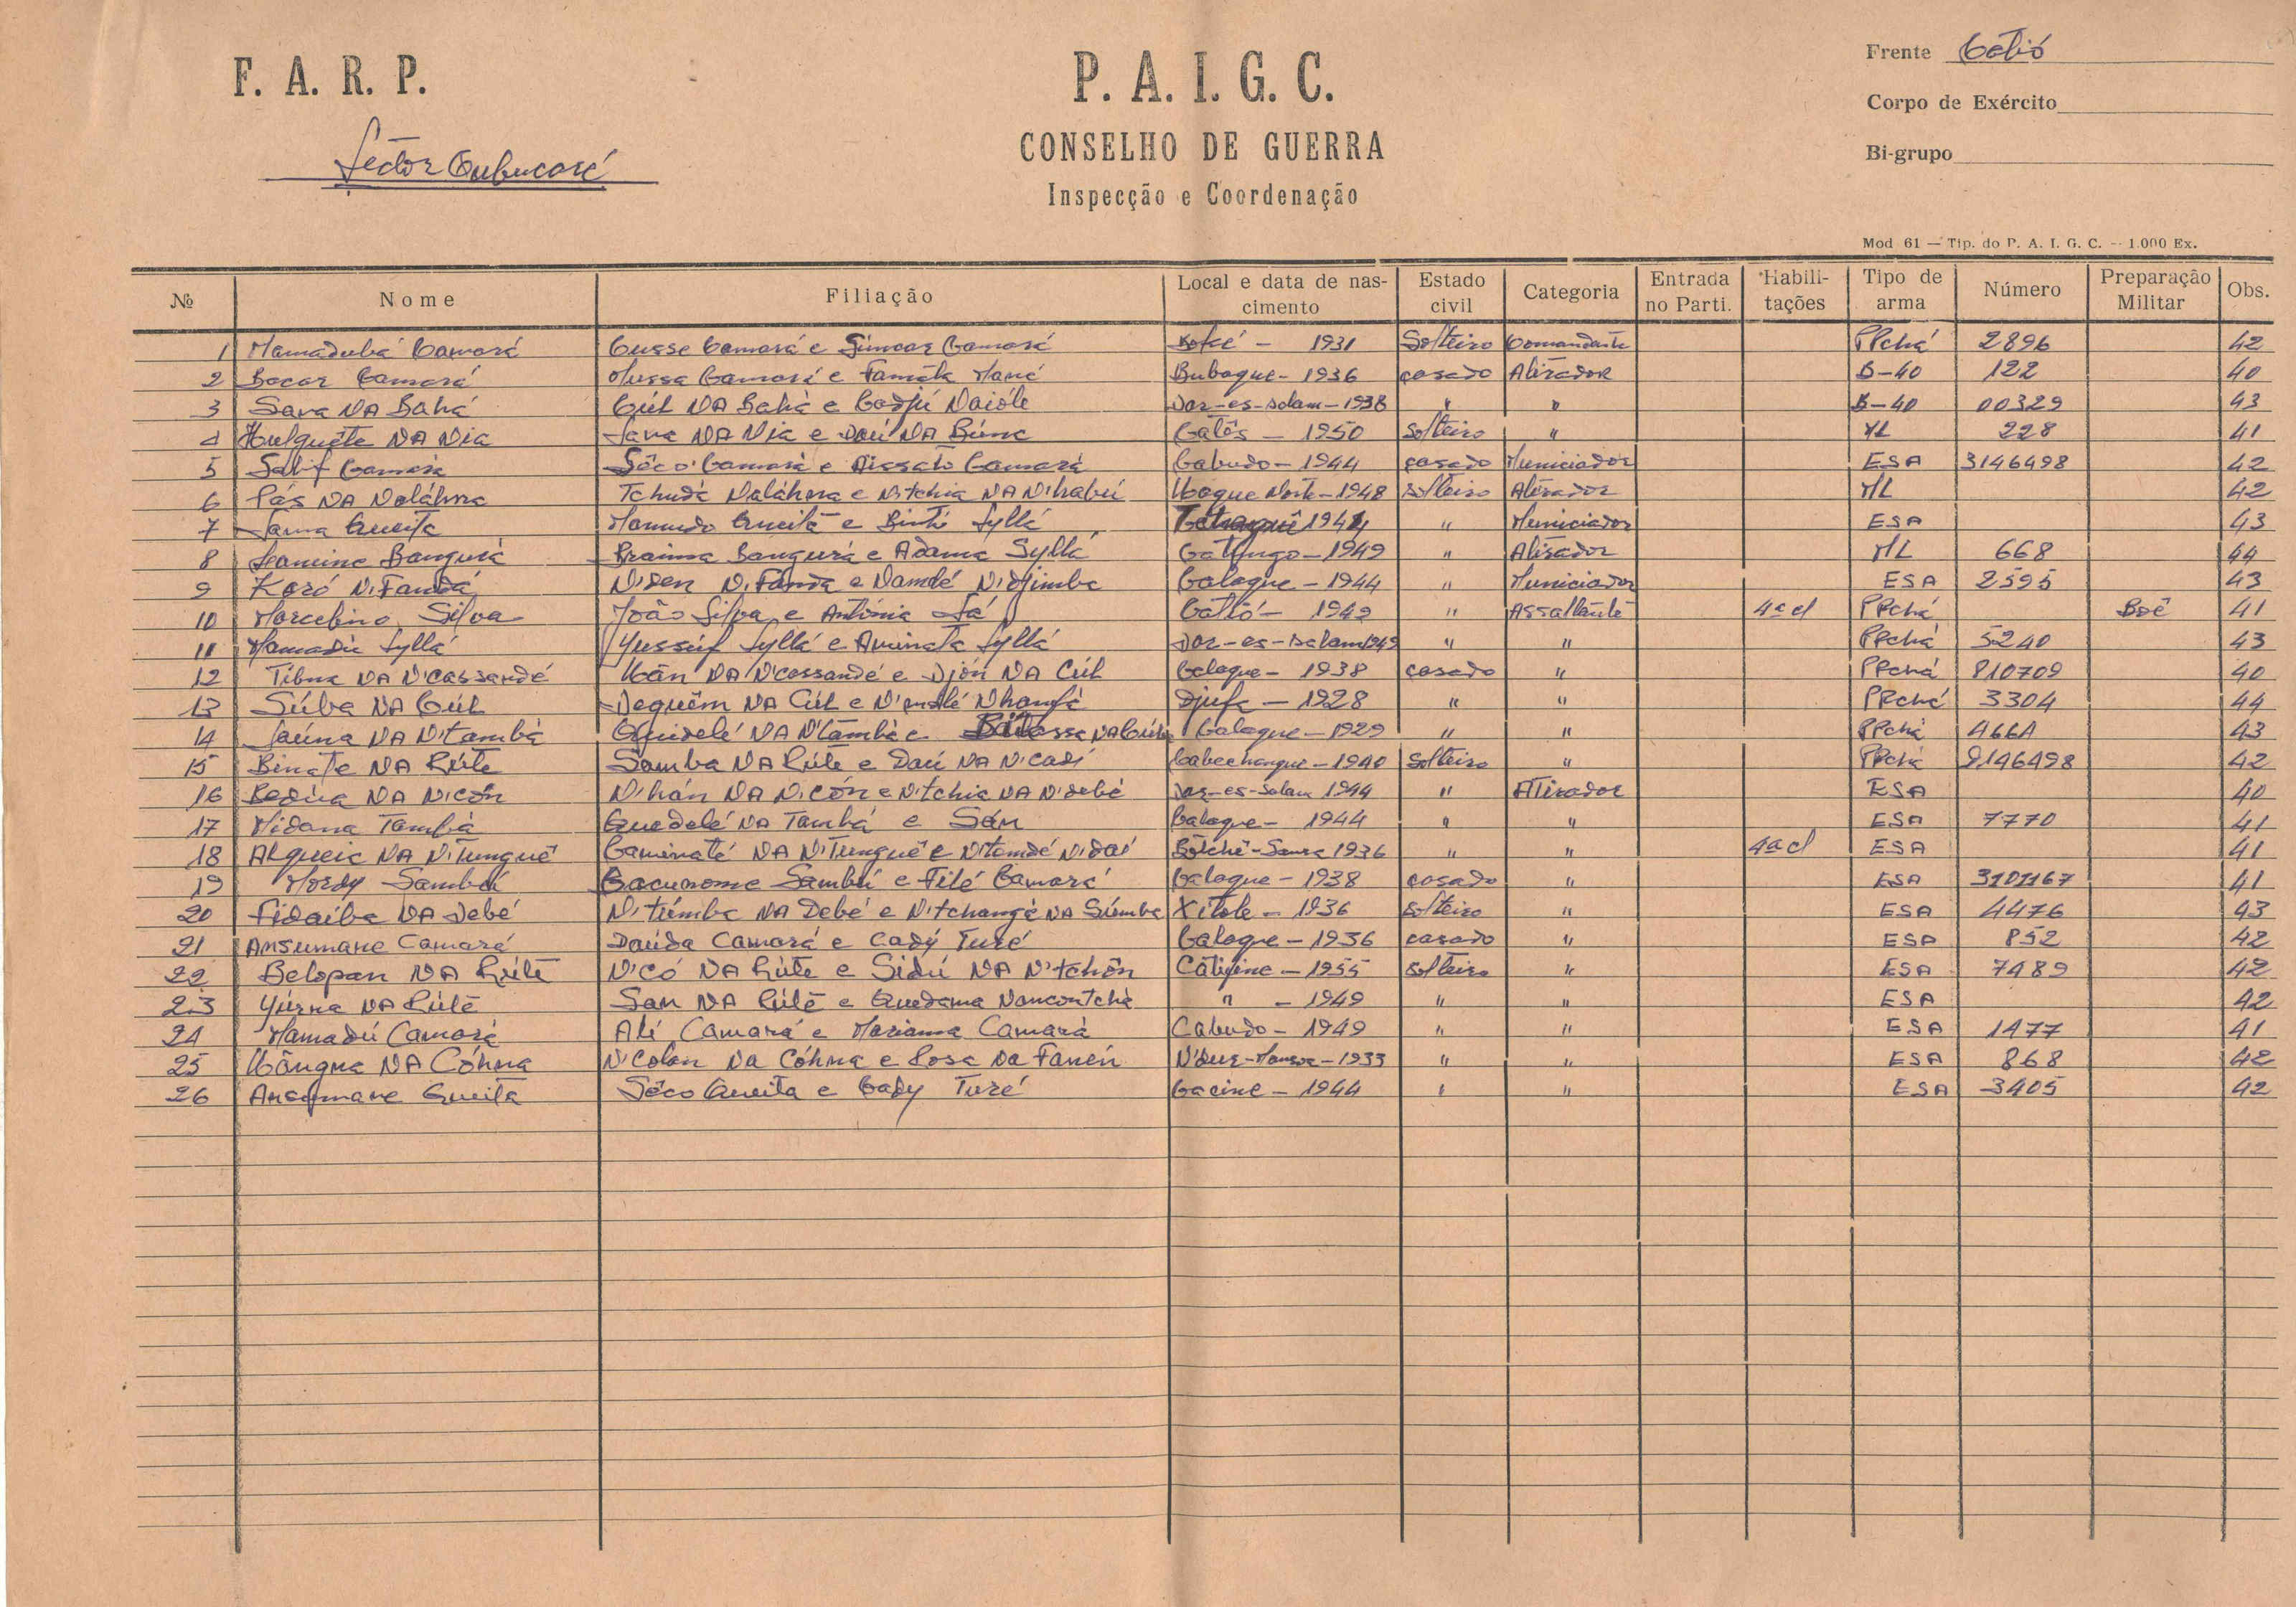 F. A. R. P.
P. A. I. G. C.
Frente Catió
CONSELHO DE GUERRA
Corpo de Exército
Sector Cubucaré
Bi-grupo
Inspecção e Coordenação
Mod 61 — Tip. do P. A. I. G. C. — 1.000 Ex.
№ Nome Filiação Local e data de nascimento Estado civil Categoria Entrada no Parti. Habilitações Tipo de arma Número Preparação Militar Obs.
1 Mamadubá Camará Cusse Camará e Camará 1931 Solteiro Comandante PPchá 2896 42
2 Bacar Camará Mussa Camará e Famata Mané Bubaque - 1936 casado Atirador B-40 122 40
3 Sana NA Bahá Cúl NA Bahá e Cadjú Naióle Dar-es-salam - 1938 " " B-40 00329 43
4 NA Nia Sana NA Nia e Daú NA Búna - 1950 solteiro " ML 228 41
5 Salif Camará Sôco Camará e Aissato Camará Cabudo - 1944 casado Municiador ESA 3146498 42
6 Pás NA Naláhna Tchudá Naláhna e N'tchia NA N'habú - 1948 solteiro Atirador ML 42
7 Sana Queita Mamudo Queitá e Binto Syllá " Municiador ESA 43
8 Lamine Bangurá Braima Bangurá e Adama Syllá Catungo - 1949 " Atirador ML 668 44
9 Karó N'Fandá N'den N'Fanda e Namdé N'djimba Calaque - 1944 " Municiador ESA 2595 43
10 Marcelino Silva João Silva e António Sá Catió - 1949 " Assaltante 4ª cl PPchá Boé 41
11 Mamadú Syllá Yussuf Syllá e Aminata Syllá Dar-es-salam 1949 " " PPchá 5240 43
12 Tibna NA N'cassandé NA N'cassandé e Djón NA Cúl Calaque - 1938 casado " PPchá 810709 40
13 Súba NA Cúl Dequêm NA Cúl e Nhanfá Djufa - 1928 " " PPchá 3304 44
14 Saúna NA N'tambá Quidelé NA N'tambá e Calaque - 1929 " " PPchá 43
15 Binate NA Rúte Samba NA Rúte e Daú NA N'cadi Cabechanque - 1940 solteiro " PPchá 9146498 42
16 Bedúa NA N'cón N'hán NA N'cón e N'tchia NA N'debé Dar-es-salam 1944 " Atirador ESA 40
17 Midana Tambá Quedelé NA Tambá e Sán Calaque - 1944 " " ESA 7770 41
18 Alqueia NA N'Tunguê Caminaté NA N'Tunguê e N'tomdé N'daí 1936 " " 4ª cl ESA 41
19 Mordy Sambú Bacunome Sambú e Filé Camará Calaque - 1938 casado " ESA 3101167 41
20 Fidaiba NA Debé N'túmba NA Debé e N'tchangá NA Súmba Xitole - 1936 solteiro " ESA 4476 43
21 Ansumane Camará Daúda Camará e Cady Turé Calaque - 1936 casado " ESA 852 42
22 Belopan NA Rúte N'có NA Rúte e Sidú NA N'tchôn - 1955 solteiro " ESA 7489 42
23 Yúrna NA Rúte San NA Rúte e Quedama Nancontcha " - 1949 " " ESA 42
24 Mamadú Camará Alí Camará e Mariama Camará Cabudo - 1949 " " ESA 1477 41
25 NA Cóhna N'Colan Na Cóhna e Rosa Na Fanên - 1933 " " ESA 868 42
26 Ansumane Queita Sôco Queita e Cady Turé Cacine - 1944 " " ESA 3405 42